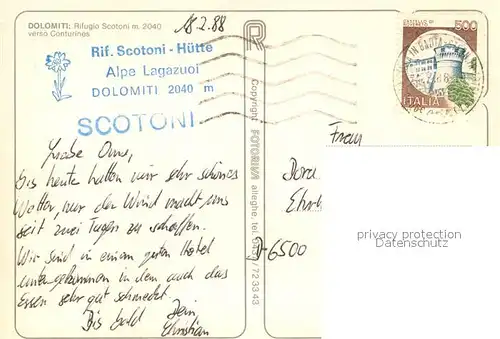 DOLOMITI: Rifugio Scotoni m. 2040
verso Conturines
18.2.88
Rif. Scotoni - Hütte
Alpe Lagazuoi
DOLOMITI 2040 m
SCOTONI
Liebe Oma,
Bis heute hatten wir sehr schönes
Wetter, nur der Wind macht uns
seit zwei Tagen zu schaffen.
Wir sind in einem guten Hotel
untergekommen in dem auch das
Essen sehr gut schmeckt.
Bis bald Dein
Christian
Copyright FOTORIVA alleghe, tel. 723343
500
ITALIA
Frau
Dora
D-6500
privacy protection
Datenschutz